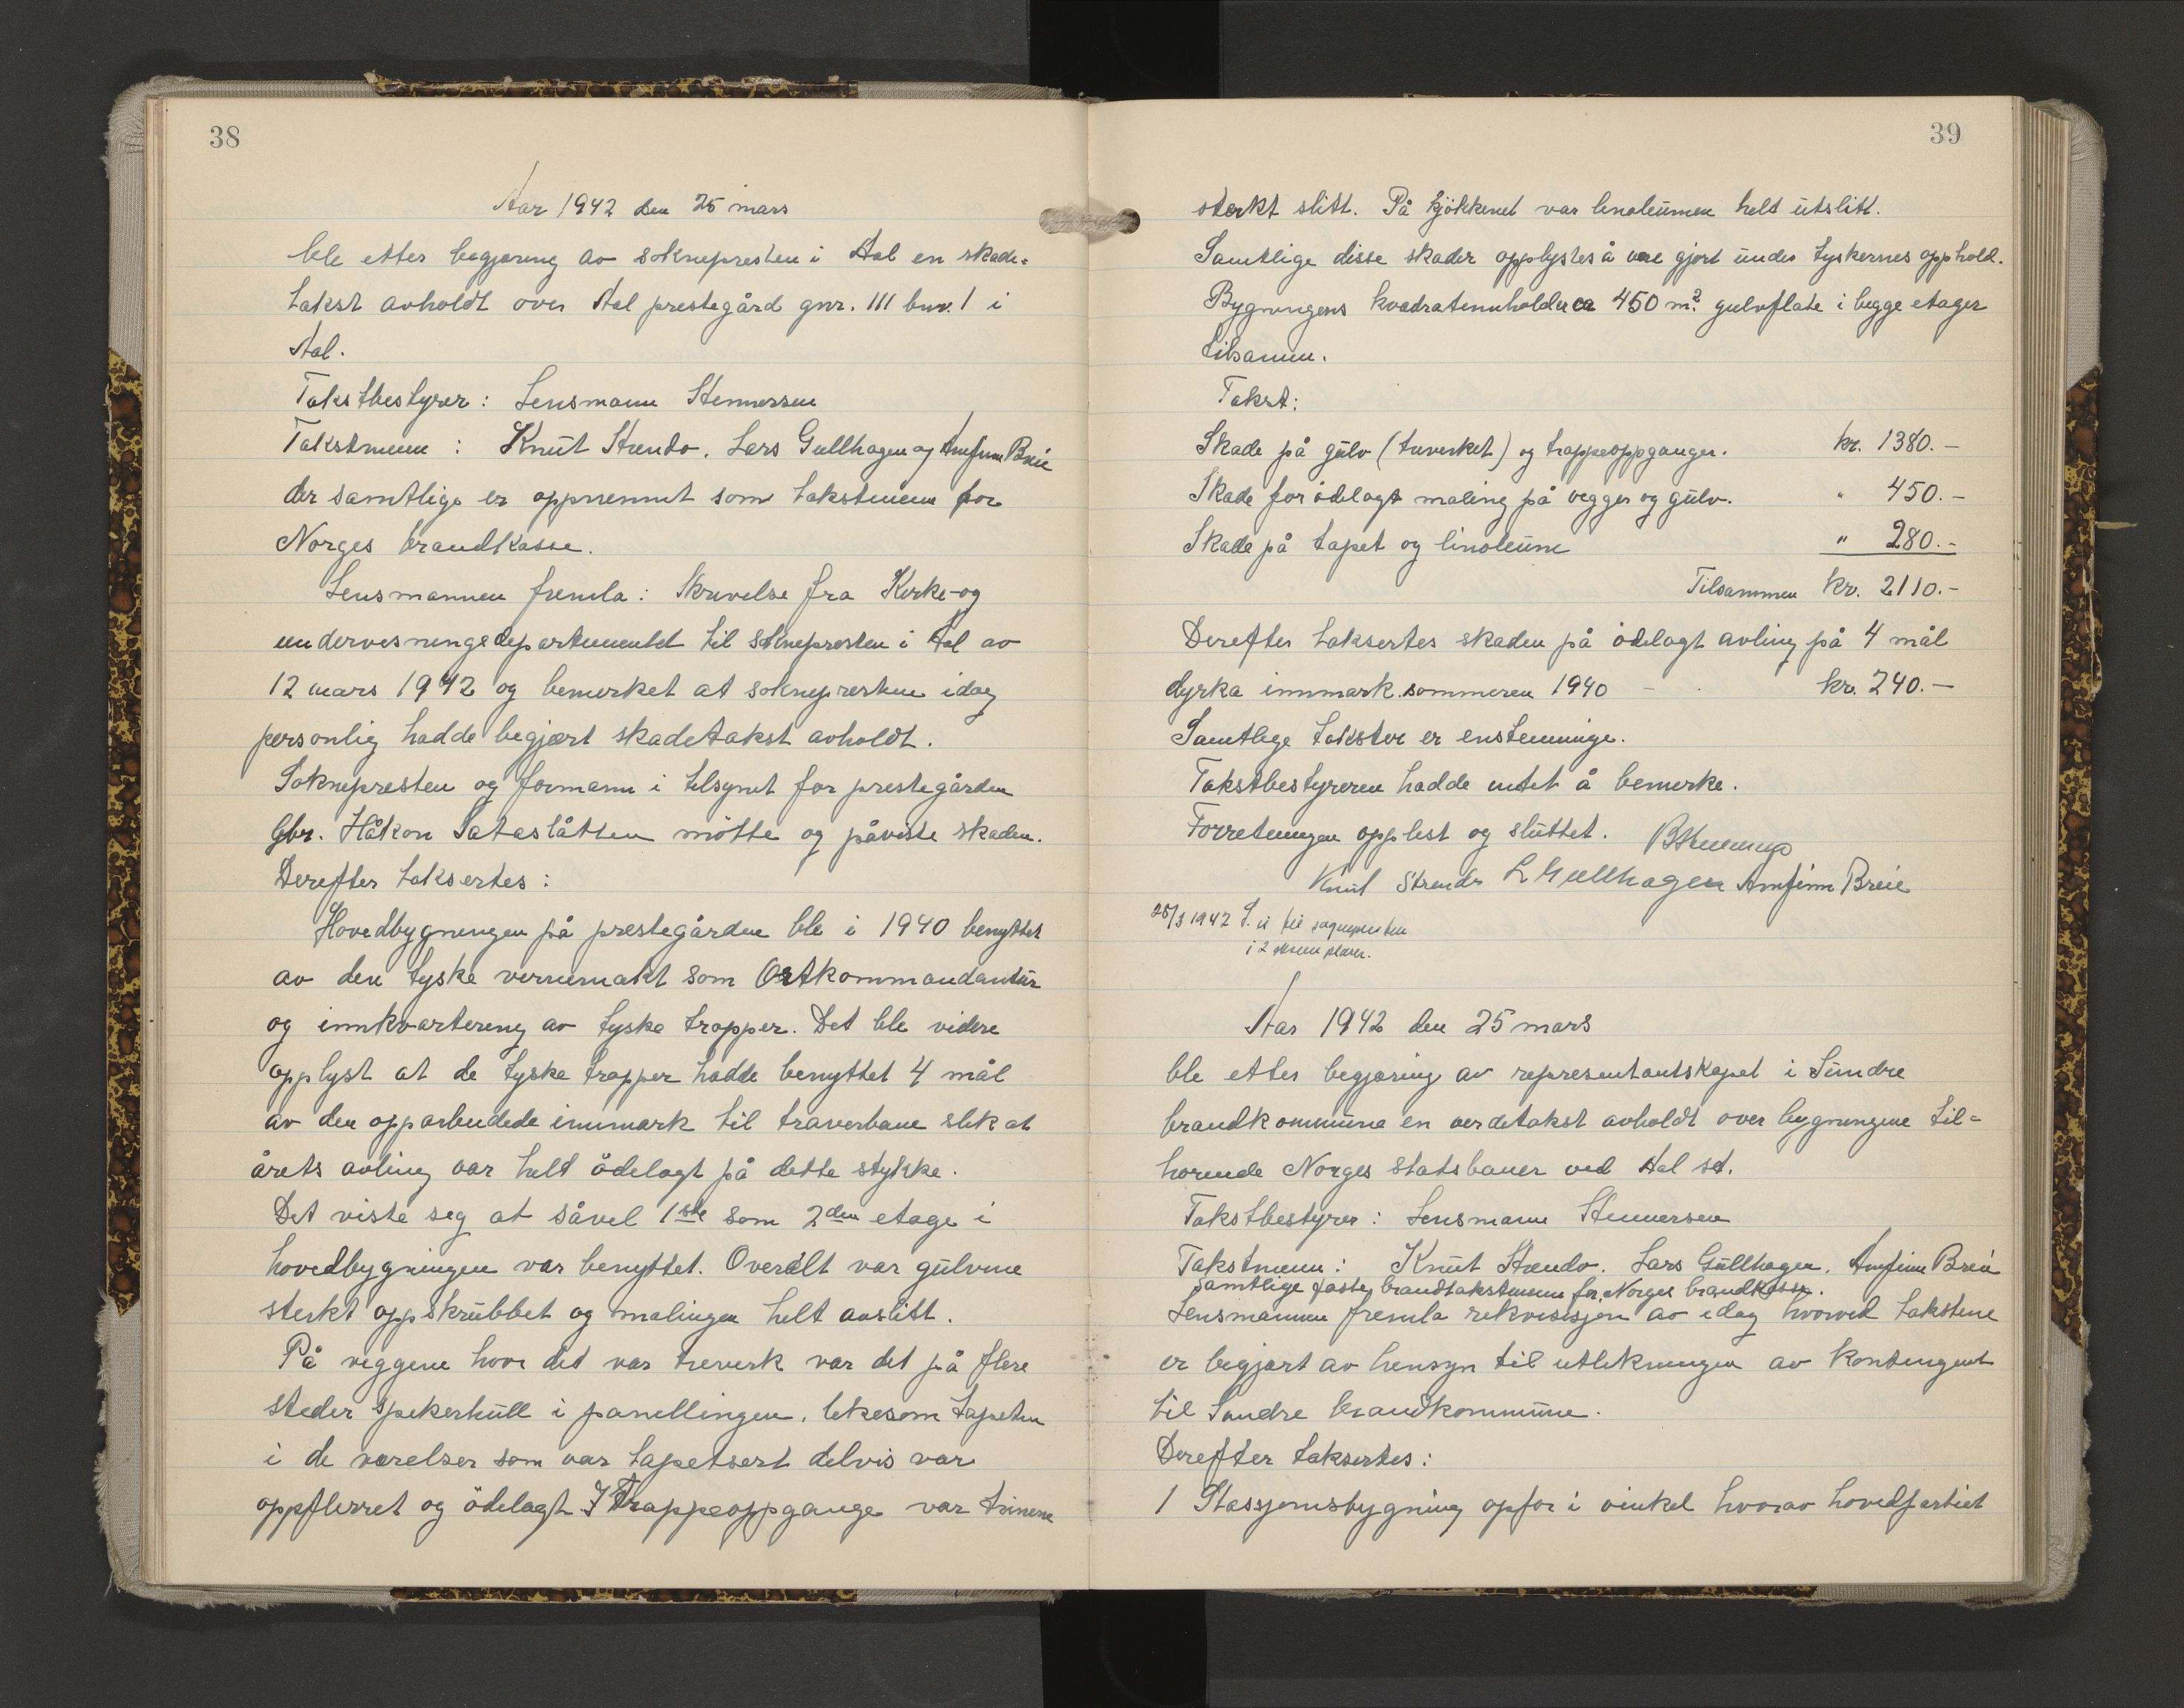 38
Aar 1942 den 25 mars
ble etter begjæring av soknepresten i Aal en skade=
takst avholdt over Aal prestegård gnr. 111 bnr. 1 i
Aal.
Takstbestyrer: Lensmann Stennersen
Takstmenn: Knut Strendo. Lars Gullhagen og Arnfinn Breie
der samtlige er oppnevnt som takstmenn for
Norges brandkasse.
Lensmannen fremla: Skrivelse fra Kirke- og
undervisningsdepartementet til soknepresten i Aal av
12 mars 1942 og bemerket at soknepresten idag
personlig hadde begjært skadetakst avholdt.
Soknepresten og formann i tilsynet for prestegården
Gbr. Håkon Sataslåtten møtte og påviste skaden.
Derefter taksertes:
Hovedbygningen på prestegården ble i 1940 benyttet
av den tyske vernemakt som Ortkommandantur
og innkvartering av tyske tropper. Det ble videre
opplyst at de tyske tropper hadde benyttet 4 mål
av den opparbeidede innmark til traverbane slik at
årets avling var helt ödelagt på dette stykke.
Det viste seg at såvel 1ste som 2den etage i
hovedbygningen var benyttet. Overalt var gulvene
sterkt oppskrubbet og malingen helt avslitt.
På veggene hvor det var treverk var det på flere
steder spikerhull i panellingen, likesom tapeten
i de værelser som var tapetsert delvis var
oppflerret og ödelagt. I Trappeoppgange var trinene
39
sterkt slitt. På kjökkenet var linoleumen helt utslitt.
Samtlige disse skader opplystes å være gjort under tyskernes opphold.
Bygningens kvadratinnhold er ca 450 m². gulvflate i begge etager
tilsamm.
Takst:
Skade på gulv (treverket) og trappeoppganger. kr. 1380.-
Skade for ödelagt maling på vegger og gulv. " 450.-
Skade på tapet og linoleum " 280.-
Tilsammen kr. 2110.-
Derefter taksertes skaden på ödelagt avling på 4 mål
dyrka innmark sommeren 1940 - kr. 240.-
Samtlige takster er enstemmige.
Takstbestyreren hadde intet å bemerke.
Forretningen opplest og sluttet.
Knut Strendo L Gullhagen Arnfinn Breie
25/3 1942 til sognepresten
i 2 eksemplarer.
Aar 1942 den 25 mars
ble etter begjæring av representantskapet i Sundre
brandkommune en verditakst avholdt over bygningene til=
hørende Norges Statsbaner ved Aal st.
Takstbestyrer: Lensmann Stennersen
Takstmenn: Knut Strendo. Lars Gullhagen. Arnfinn Breie
samtlige faste brandtakstmenn for Norges brandkasse.
Lensmannen fremla rekvisisjon av idag hvorved takstene
er begjært av hensyn til utlikningen av kontingent
til Sundre brandkommune.
Derefter taksertes:
1 Stasjonsbygning opfør i vinkel hvorav hovedpartiet